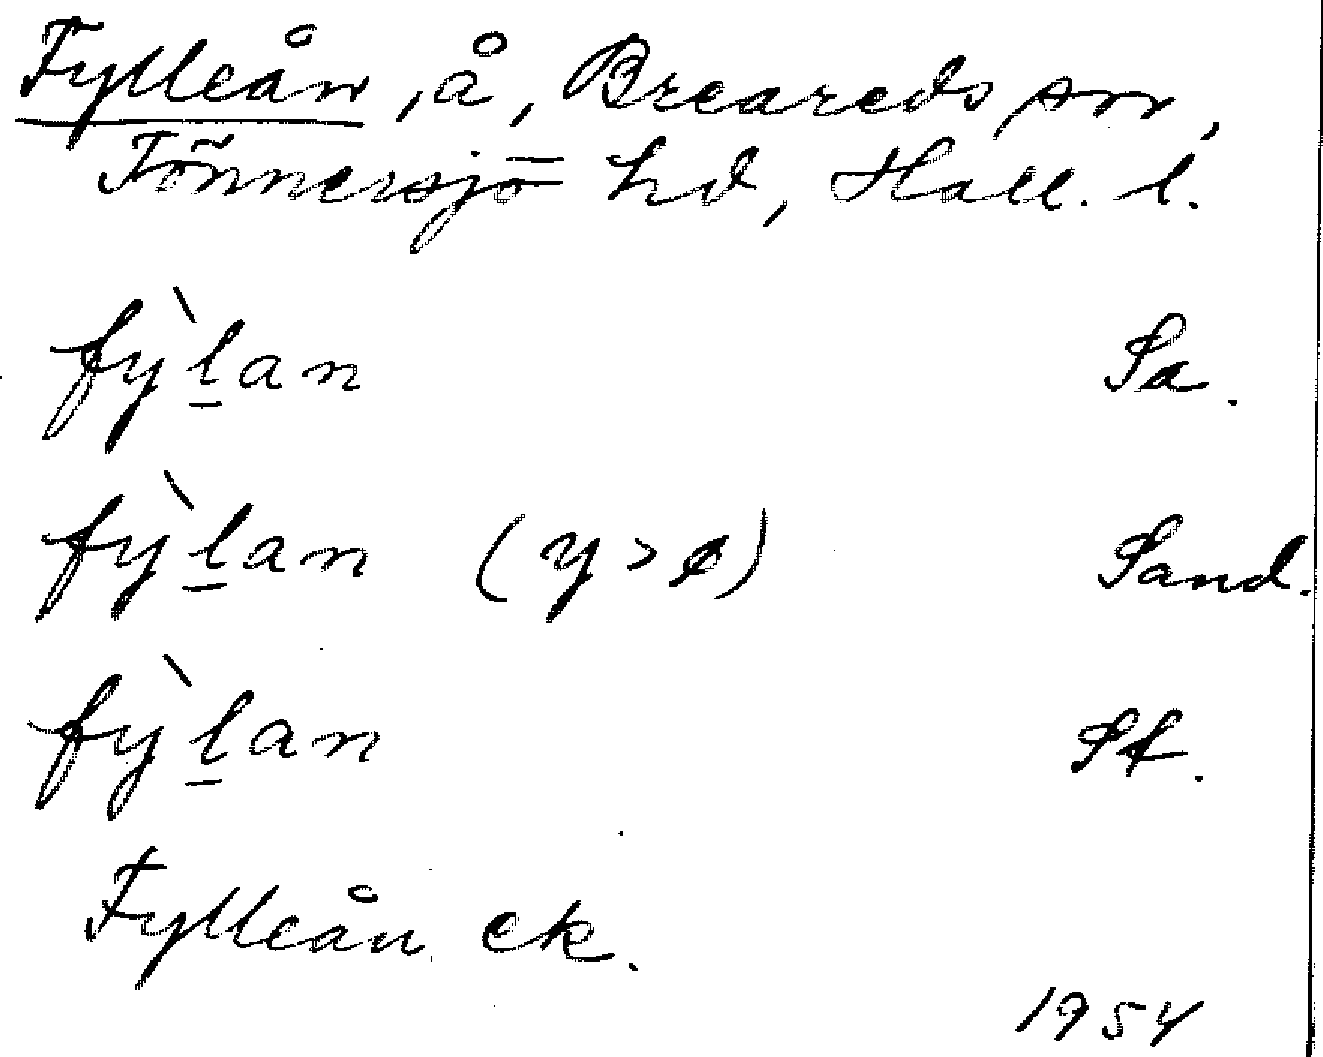 Fylleån, å, Breareds sn,
Tönnersjö hd, Hall. l.
fỳlan Sa.
fỳlan (y > ø) Sand.
fỳlan St.
Fylleån ek.
1954